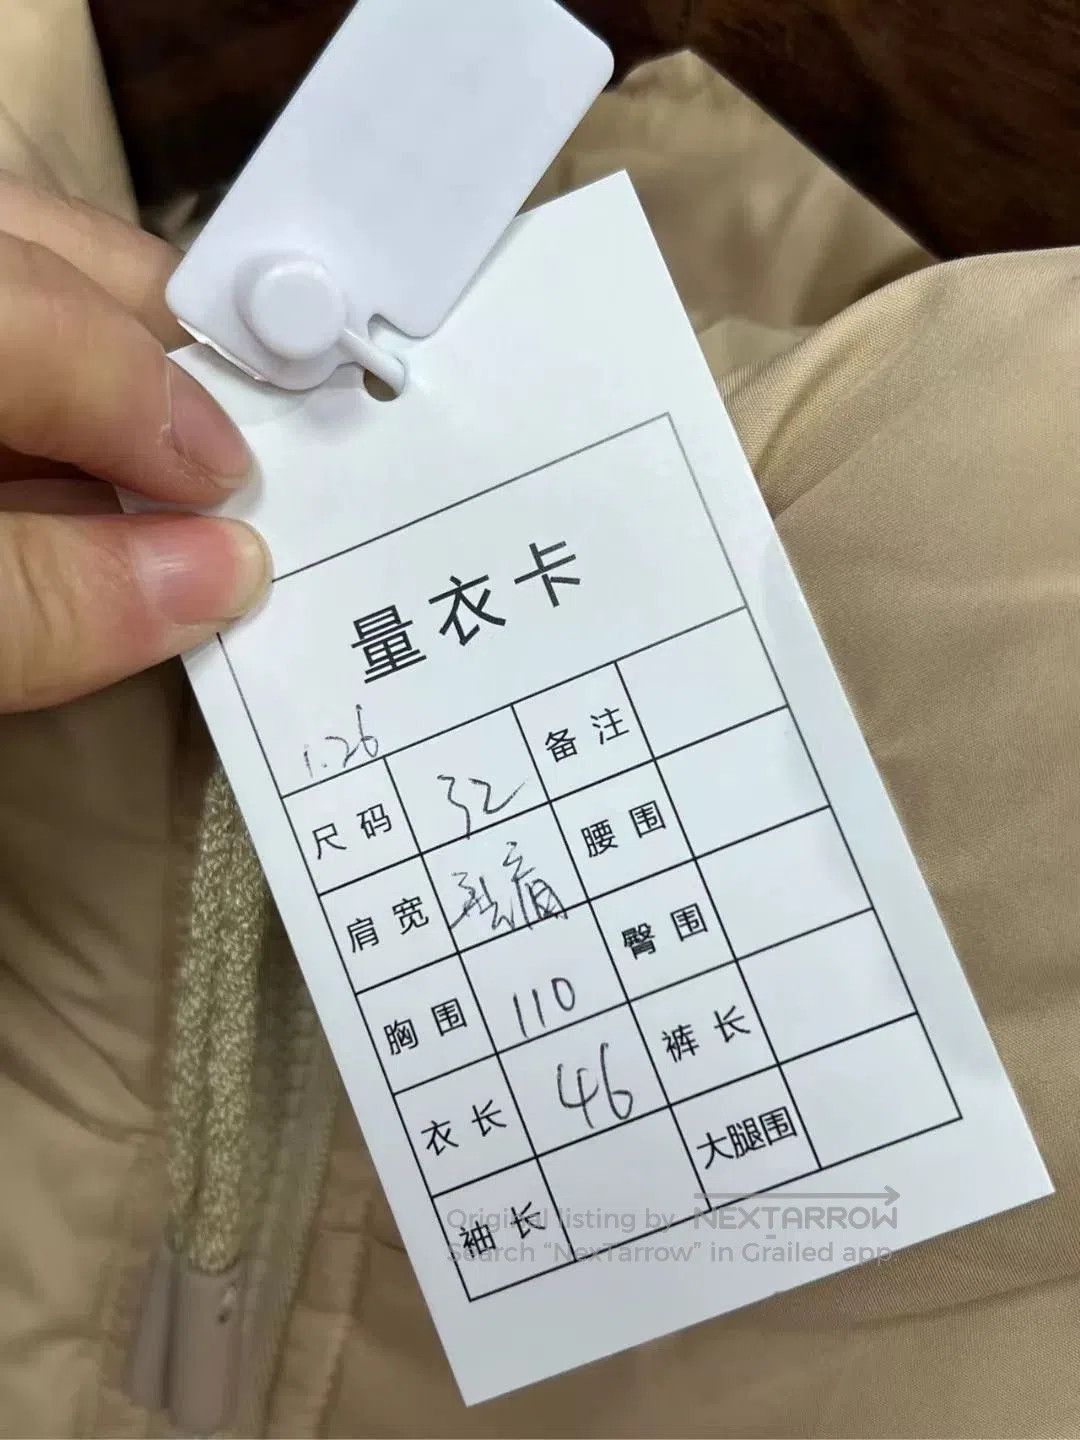 量衣卡
1.26
尺码 32 备注
肩宽 腰围
胸围 110 臀围
衣长 46 裤长
袖长 大腿围
Original listing by NEXTARROW
Search “NexTarrow” in Grailed app